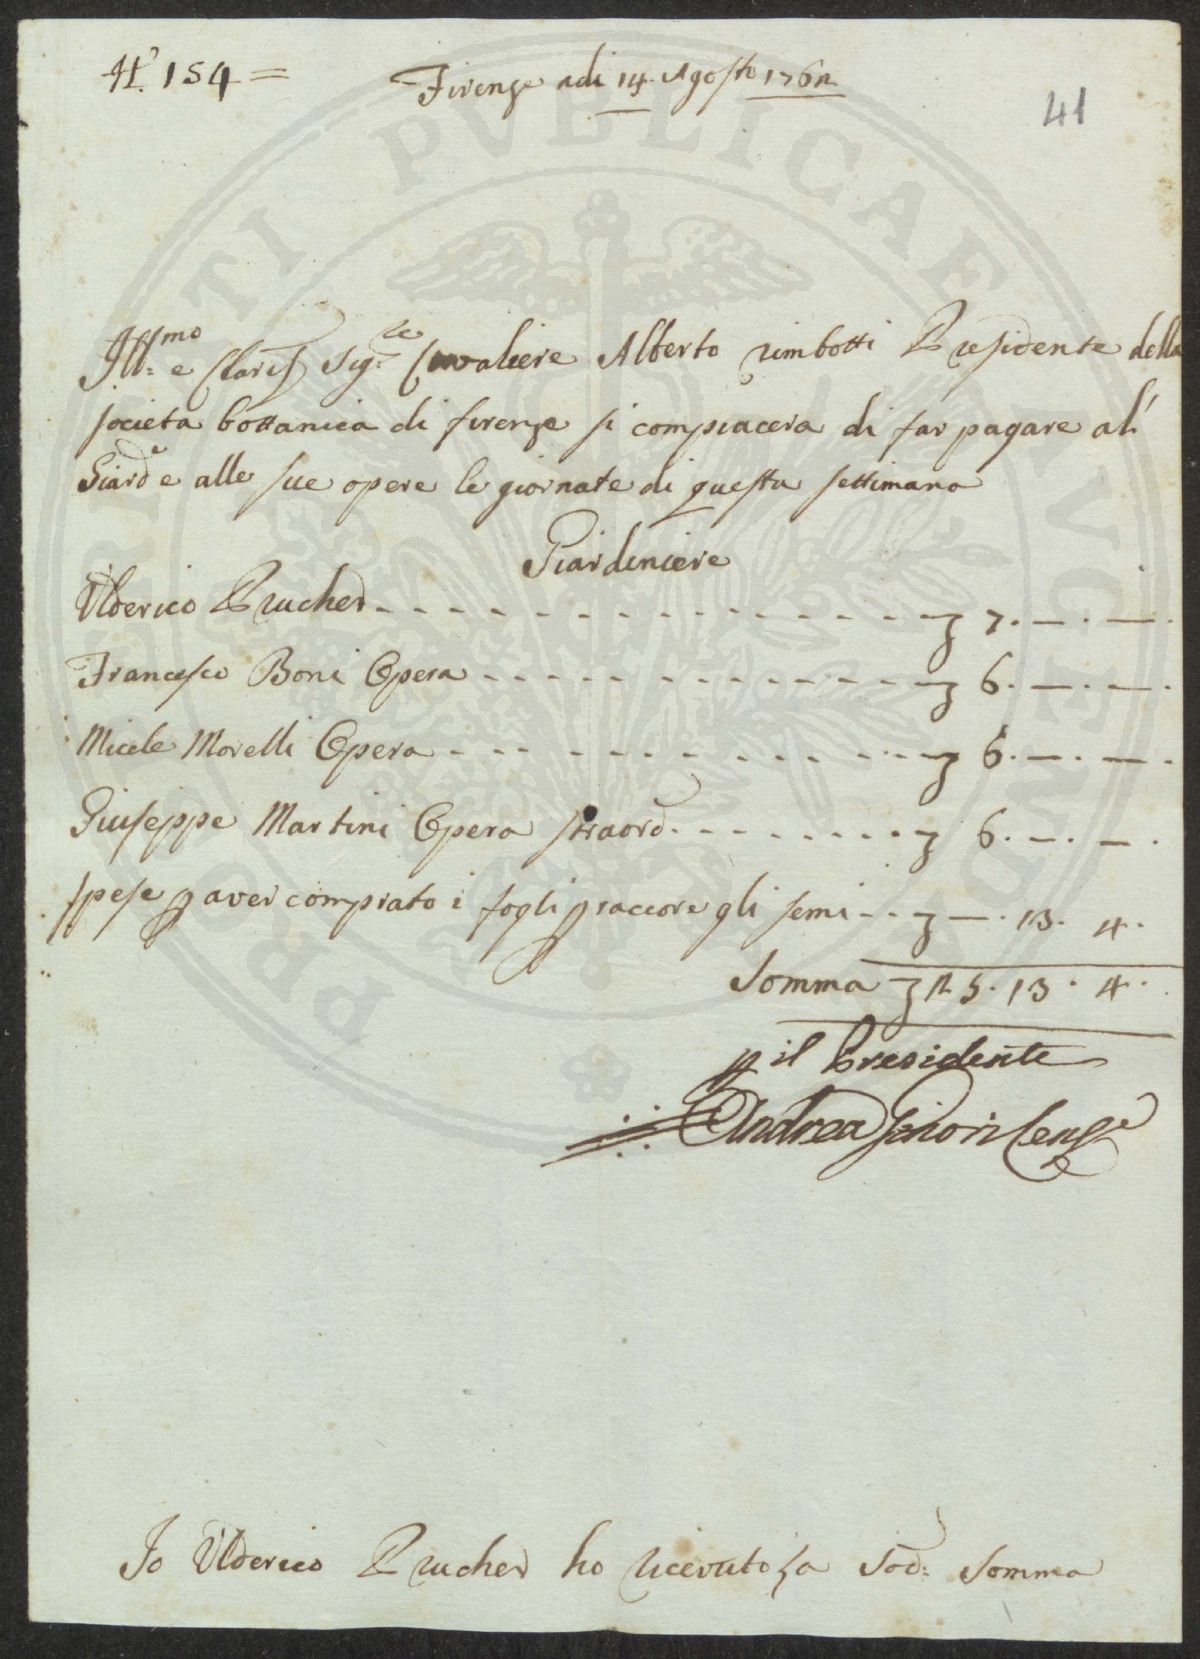 N.° 154 =
Firenze adi 14. Agosto 1762
41
Ill.mo e Clariss Sig.re Cavaliere Alberto rimbotti Presidente della
società bottanica di firenze si compiacera di far pagare al'
Giard.e e alle sue opere le giornate di questa settimana
Giardiniere
Ulderico Prucher - - - - - - - - - - - - - - - - - - £ 7. —. —.
Francesco Boni Opera - - - - - - - - - - - - - £ 6. —. —.
Micele Morelli Opera - - - - - - - - - - - - - £ 6. —. —.
Giuseppe Martini Opera straord. - - - - - - - - - £ 6. —. —.
spese p aver comprato i fogli p raccore gli semi - - £ —. 13. 4.
Somma £ 25. 13. 4.
p il Presidente
Andrea Ginori
Io Ulderico Prucher ho ricevuto la Sod: Somma
PROSPERITATI PVBLICAE AVGENDAE